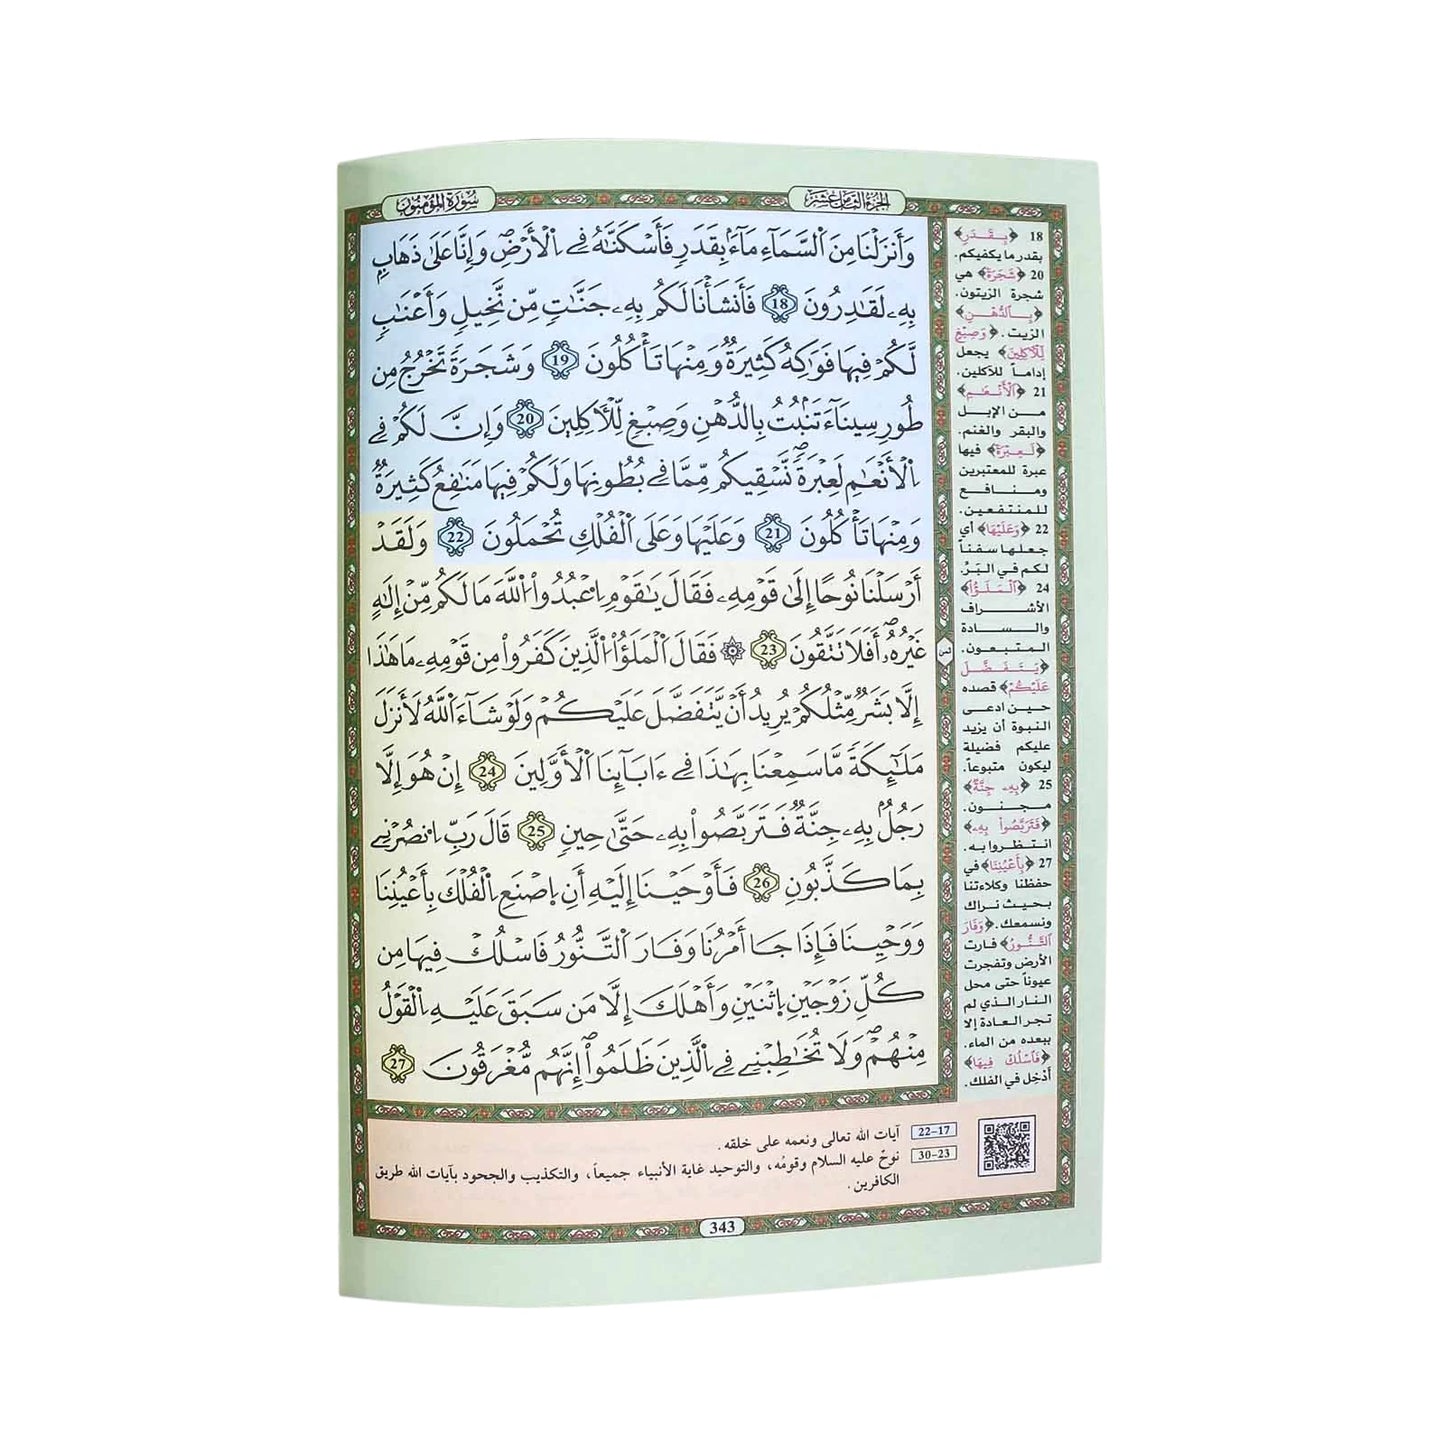 سُورَةُ المُؤْمِنُونَ
الجُزْءُ الثَّامِنَ عَشَرَ
وَأَنزَلْنَا مِنَ اَ۬لسَّمَآءِ مَآءَۢ بِقَدَرٖ فَأَسْكَنَّٰهُ فِے اِ۬لْأَرْضِۖ وَإِنَّا عَلَىٰ ذَهَابِۢ
بِهِۦ لَقَٰدِرُونَ 18 فَأَنشَأْنَا لَكُم بِهِۦ جَنَّٰتٖ مِّن نَّخِيلٖ وَأَعْنَٰبٖ
لَّكُمْ فِيهَا فَوَٰكِهُ كَثِيرَةٞ وَمِنْهَا تَأْكُلُونَ 19 وَشَجَرَةٗ تَخْرُجُ مِن
طُورِ سِينَآءَ تَنۢبُتُ بِالدُّهْنِ وَصِبْغٖ لِّلْأٓكِلِينَ 20 وَإِنَّ لَكُمْ فِے
اِ۬لْأَنْعَٰمِ لَعِبْرَةٗۖ نَّسْقِيكُم مِّمَّا فِے بُطُونِهَا وَلَكُمْ فِيهَا مَنَٰفِعُ كَثِيرَةٞ
وَمِنْهَا تَأْكُلُونَ 21 وَعَلَيْهَا وَعَلَى اَ۬لْفُلْكِ تُحْمَلُونَ 22 وَلَقَدْ
أَرْسَلْنَا نُوحًا إِلَىٰ قَوْمِهِۦ فَقَالَ يَٰقَوْمِ اِ۟عْبُدُواْ اُ۬للَّهَ مَا لَكُم مِّنْ إِلَٰهٍ
غَيْرُهُۥٓۖ أَفَلَا تَتَّقُونَ 23 ۞ فَقَالَ اَ۬لْمَلَؤُاْ اُ۬لَّذِينَ كَفَرُواْ مِن قَوْمِهِۦ مَا هَٰذَا
إِلَّا بَشَرٞ مِّثْلُكُمْ يُرِيدُ أَنْ يَّتَفَضَّلَ عَلَيْكُمْ وَلَوْ شَآءَ اَ۬للَّهُ لَأَنزَلَ
مَلَٰٓئِكَةٗ مَّا سَمِعْنَا بِهَٰذَا فِے ءَابَآئِنَا اَ۬لْأَوَّلِينَ 24 إِنْ هُوَ إِلَّا
رَجُلُۢ بِهِۦ جِنَّةٞ فَتَرَبَّصُواْ بِهِۦ حَتَّىٰ حِينٖ 25 قَالَ رَبِّ اِ۟نصُرْنِے
بِمَا كَذَّبُونِ 26 فَأَوْحَيْنَا إِلَيْهِ أَنِ اِ۪صْنَعِ اِ۬لْفُلْكَ بِأَعْيُنِنَا
وَوَحْيِنَا فَإِذَا جَا أَمْرُنَا وَفَارَ اَ۬لتَّنُّورُ فَاسْلُكْ فِيهَا مِن
كُلِّ زَوْجَيْنِ اِ۪ثْنَيْنِ وَأَهْلَكَ إِلَّا مَن سَبَقَ عَلَيْهِ اِ۬لْقَوْلُ
مِنْهُمْۖ وَلَا تُخَٰطِبْنِے فِے اِ۬لَّذِينَ ظَلَمُواْۖ إِنَّهُم مُّغْرَقُونَ 27
18 ﴿بِقَدَرٍ﴾
بقدر ما يكفيكم.
20 ﴿شَجَرَةً﴾ هي
شجرة الزيتون.
﴿بِالدُّهْنِ﴾
الزيت. ﴿وَصِبْغٍ
لِّلْآكِلِينَ﴾ يجعل
إداماً للآكلين.
21 ﴿الْأَنْعَامِ﴾
من الإبل
والبقر والغنم.
﴿لَعِبْرَةً﴾ فيها
عبرة للمعتبرين
ومنافع
للمنتفعين.
22 ﴿وَعَلَيْهَا﴾ أي
جعلها سفناً
لكم في البَرّ.
24 ﴿الْمَلَؤُا﴾
الأشراف
والسادة
المتبعون.
﴿يَتَفَضَّلَ
عَلَيْكُمْ﴾ قصده
حين ادعى
النبوة أن يزيد
عليكم فضيلة
ليكون متبوعاً.
25 ﴿بِهِ جِنَّةٌ﴾
مجنون.
﴿فَتَرَبَّصُوا بِهِ﴾
انتظروا به.
27 ﴿بِأَعْيُنِنَا﴾ في
حفظنا وكلاءتنا
بحيث نراك
ونسمعك. ﴿وَفَارَ
التَّنُّورُ﴾ فارت
الأرض وتفجرت
عيوناً حتى محل
النار الذي لم
تجر العادة إلا
ببعده من الماء.
﴿فَاسْلُكْ فِيهَا﴾
أدْخِل في الفلك.
ثمن
22-17 آيات الله تعالى ونعمه على خلقه.
30-23 نوحٌ عليه السلام وقومُه، والتوحيد غاية الأنبياء جميعاً، والتكذيب والجحود بآيات الله طريق
الكافرين.
343